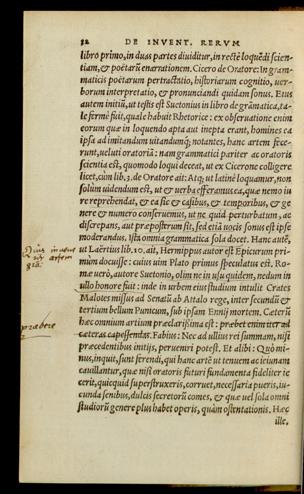 32 DE INVENT. RERVM
libro primo, in duas partes diuiditur, in rectè loquẽdi scien-
tiam, & poëtarũ enarrationem. Cicero de Oratore: In gram-
maticis poëtarum pertractatio, historiarum cognitio, uer-
borum interpretatio, & pronunciandi quidam sonus. Eius
autem initiũ, ut testis est Suetonius in libro de grãmatica, ta-
le fermè fuit, quale habuit Rhetorice: ex obseruatione enim
eorum quæ in loquendo apta aut inepta erant, homines ea
ipsa ad imitandum uitandumq; notantes, hanc artem fece-
runt, ueluti oratoriã: nam grammatici pariter ac oratoris
scientia est, quomodo loqui deceat, ut ex Cicerone colligere
licet, cùm lib. 3. de Oratore ait: Atq; ut latinè loquamur, non
solùm uidendum est, ut & uerba efferamus ea, quæ nemo iu
re reprehendat, & ea sic & casibus, & temporibus, & ge
nere & numero conseruemus, ut ne quid perturbatum, ac
discrepans, aut præposterum sit, sed etiã uocis sonus est ipse
moderandus. Ista omnia grammatica sola docet. Hanc autẽ,
ut Laërtius lib. 10. ait, Hermippus autor est Epicurum pri-
mùm docuisse: cuius uim Plato primus speculatus est. Ro-
mæ uerò, autore Suetonio, olim ne in usu quidem, nedum in
ullo honore fuit: inde in urbem eius studium intulit Crates
Malotes missus ad Senatũ ab Attalo rege, inter secundũ &
tertium bellum Punicum, sub ipsam Ennij mortem. Cæterũ
hæc omnium artium præclarißima est: præbet enim iter ad
cæteras capessendas. Fabius: Nec ad ullius rei summam, nisi
præcedentibus initijs, perueniri potest. Et alibi: Quò mi-
nus, inquit, sunt ferendi, qui hanc artẽ ut tenuem ac ieiunam
cauillantur, quæ nisi oratoris futuri fundamenta fideliter ie
cerit, quicquid superstruxeris, corruet, necessaria pueris, iu-
cunda senibus, dulcis secretorũ comes, & quæ uel sola omni
studiorũ genere plus habet operis, quàm ostentationis. Hæc
ille,
præbere